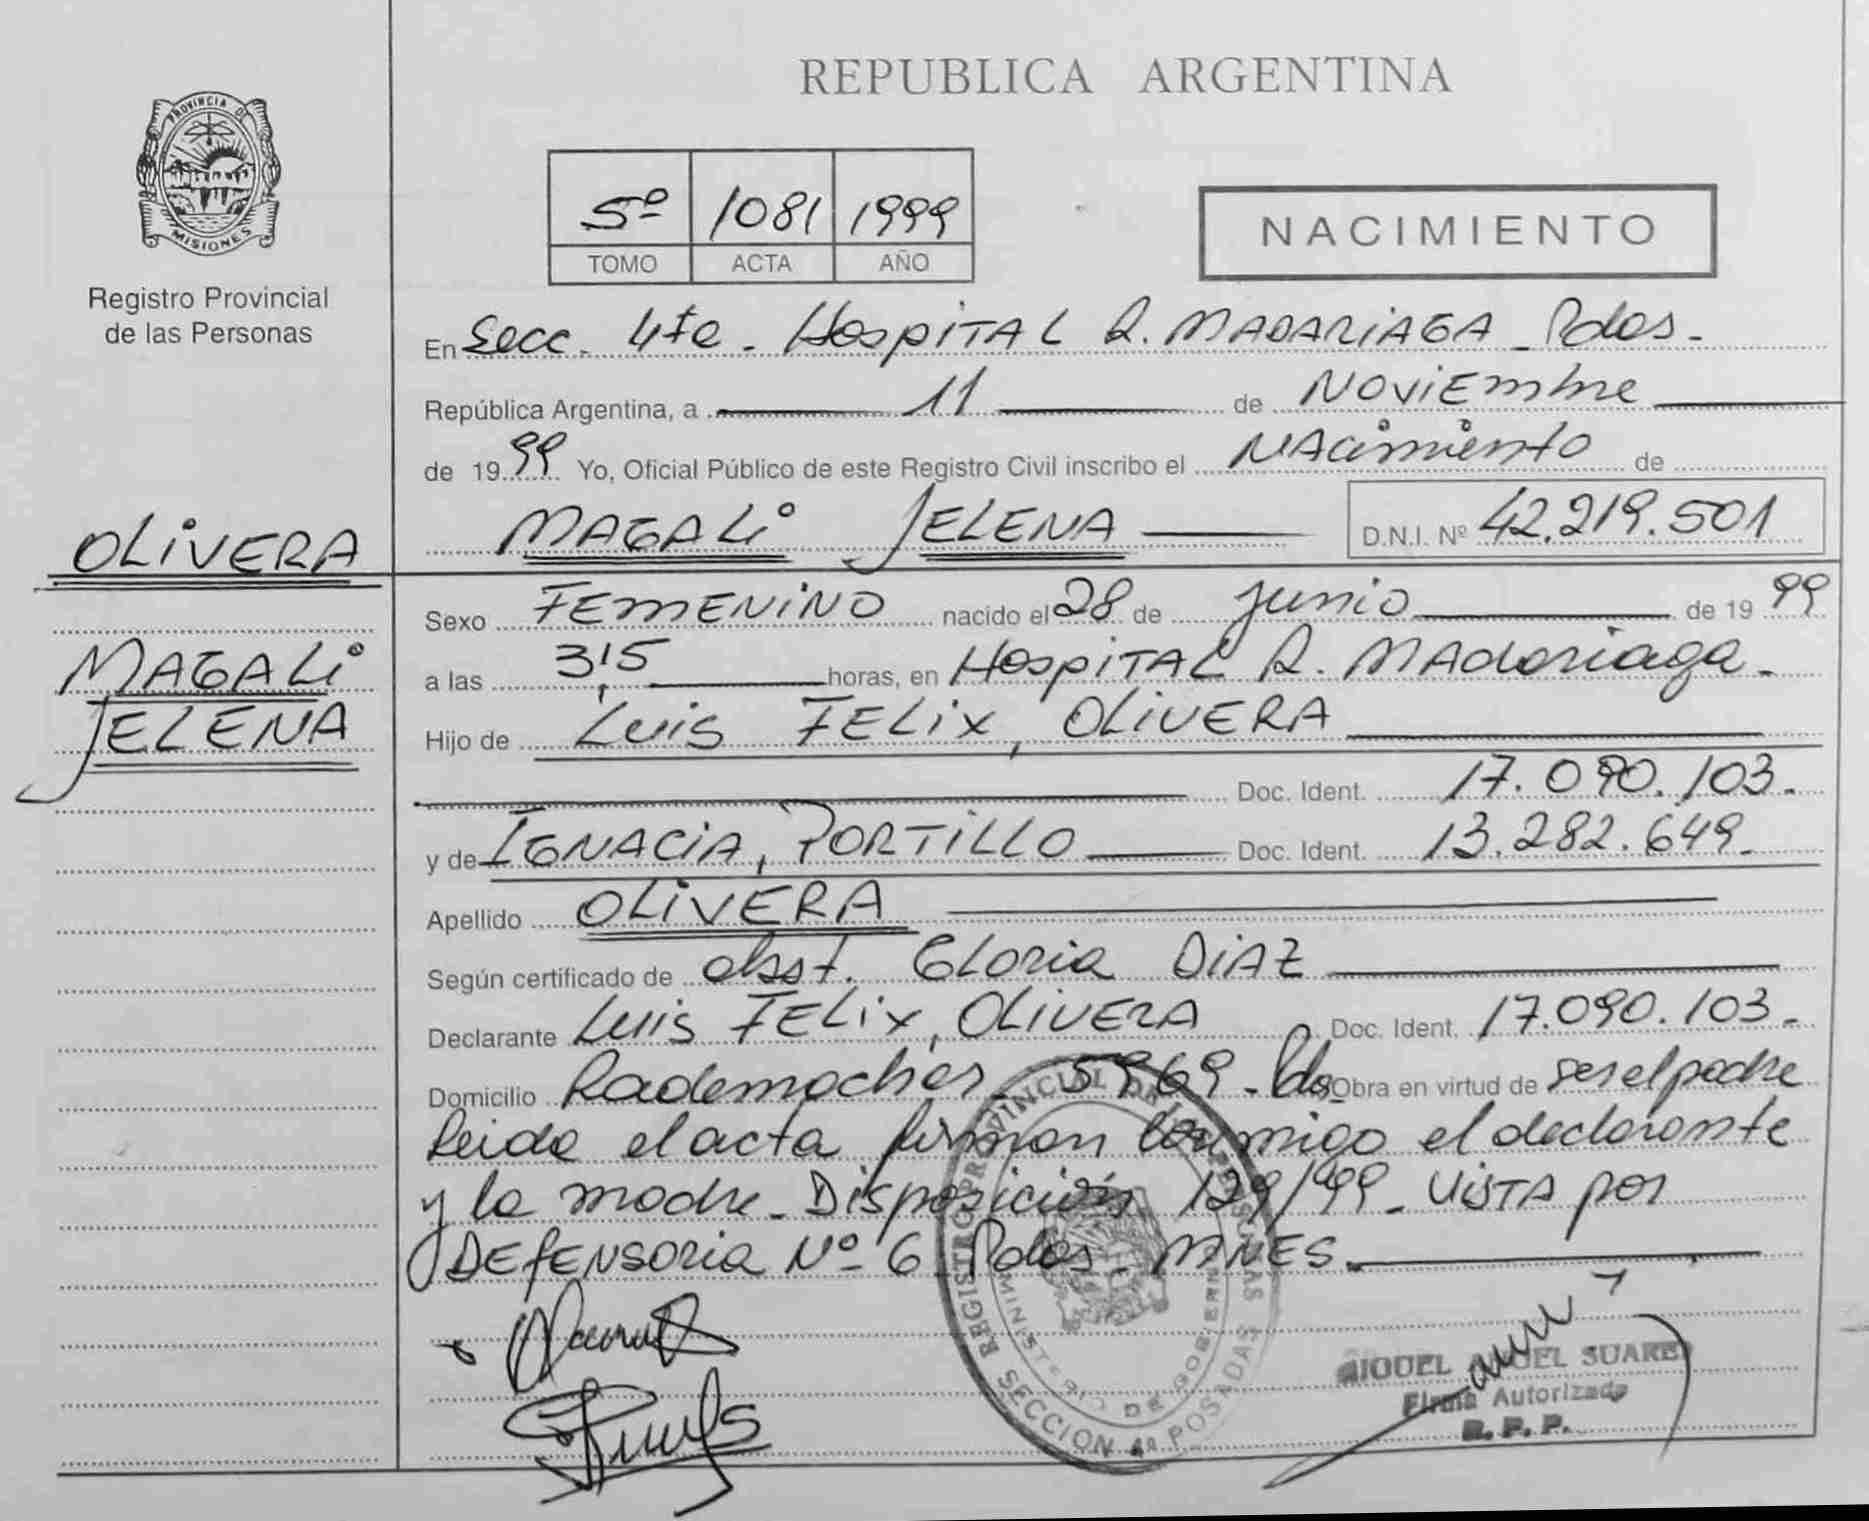 REPUBLICA ARGENTINA
PROVINCIA DE
MISIONES
Registro Provincial
de las Personas
5º 1081 1999
TOMO ACTA AÑO
NACIMIENTO
En Secc. 4ta. Hospital R. MADARIAGA - Pdas.
República Argentina, a 11 de NOViEmbre
de 1999 Yo, Oficial Público de este Registro Civil inscribo el NAcimiento de
MAGALi JELENA D.N.I. Nº 42.219.501
OLiVERA
Sexo FEMENiNO nacido el 28 de junio de 1999
MAGALi
a las 3,15 horas, en HospiTAL R. MADariaga -
JELENA
Hijo de Luis FELix, OLiVERA
Doc. Ident. 17.090.103.
y de IGNACiA, PORTiLLO Doc. Ident. 13.282.649.
Apellido OLiVERA
Según certificado de obst. GLoria DiAZ
Declarante Luis FELix, OLiVERA Doc. Ident. 17.090.103.
Domicilio Rademacher 5969 - Pdas Obra en virtud de ser el padre
Leida el acta firman conmigo el declarante
y la madre - Disposición 129/99 - ViSTA por
DEfENSoria Nº 6 Pdas - MNES.
REGISTRO PROVINCIAL DE LAS PERSONAS
MINISTERIO DE GOBIERNO
SECCION 4ª POSADAS
MIGUEL ANGEL SUAREZ
Firma Autorizada
R. P. P.